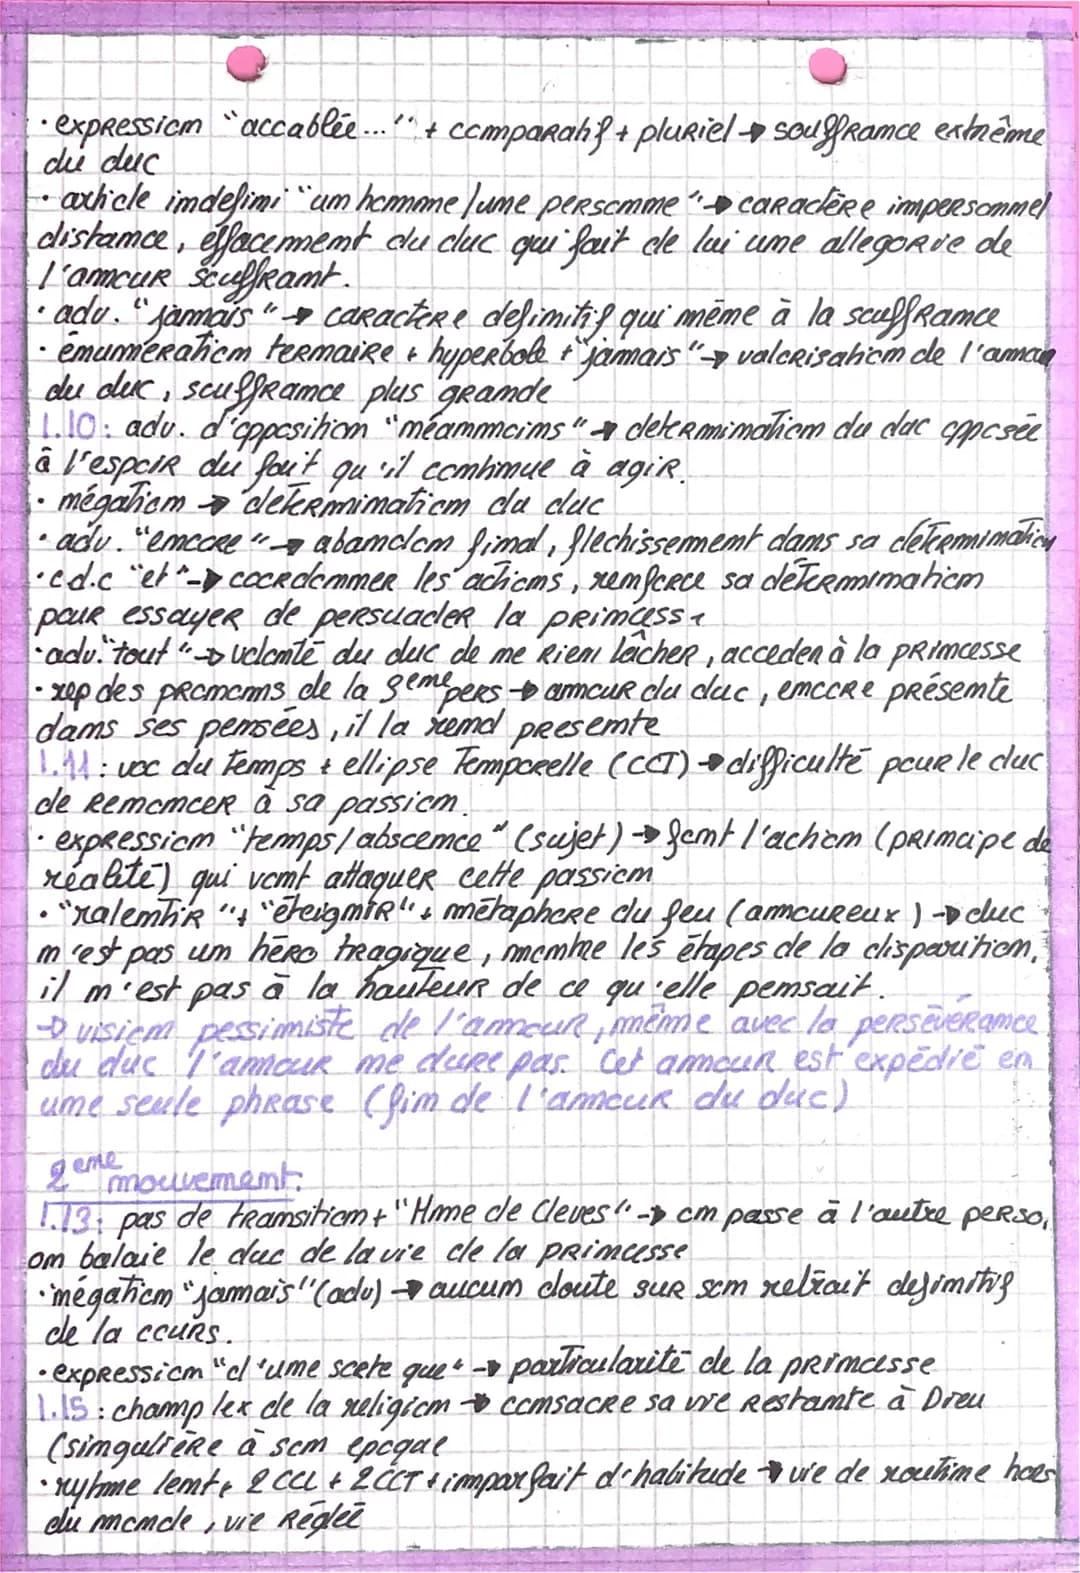 · expression "accablée..." + comparatif + pluriel → souffrance extrême
du duc
· article indefini "un homme/une personne" → caractère impersonnel
distance, effacement du duc qui fait de lui une allegorie de
l'amour souffrant.
· adv. "jamais" → caractere definitif qui mène à la souffrance
· énumération ternaire + hyperbole + "jamais" → valorisation de l'amour
du duc, souffrance plus grande
l.10 : adv. d'opposition "néanmoins" → determination du duc opposée
à l'espoir du fait qu'il continue à agir.
· négation → determination du duc
· adv. "encore" → abandon final, flechissement dans sa détermination
· c.d.c "et" → coordonner les actions, renforce sa détermination
pour essayer de persuader la princesse
· adv. "tout" → volonté du duc de ne rien lâcher, acceder à la princesse
· rep des pronoms de la 3eme pers → amour du duc, encore présente
dans ses pensées, il la rend presente
l.11 : voc du temps + ellipse temporelle (CCT) → difficulté pour le duc
de renoncer à sa passion.
· expression "temps/abscence" (sujet) → font l'action (principe de
réalité) qui vont attaquer cette passion
· "ralentir" + "éteignir" + métaphore du feu (amoureux) → duc
n'est pas un héro tragique, montre les étapes de la disparition,
il n'est pas à la hauteur de ce qu'elle pensait.
→ vision pessimiste de l'amour, même avec la persévérance
du duc l'amour ne dure pas. Cet amour est expédié en
une seule phrase (fin de l'amour du duc)
2eme mouvement:
l.13 : pas de transition + "Mme de Cleves" → on passe à l'autre perso,
on balaie le duc de la vie de la princesse
· négation "jamais" (adv) → aucun doute sur son retrait definitif
de la cours.
· expression "d'une sorte que" → particularité de la princesse
l.15 : champ lex de la religion → consacre sa vie restante à Dieu
(singulière à son epoque
· rytme lent, 2 CCL + 2 CCT + imparfait d'habitude → vie de routine hors
du monde, vie réglée